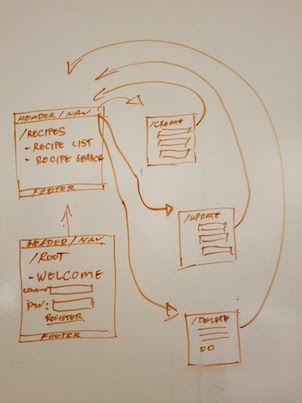 HEADER/NAV
/RECIPES
- RECIPE LIST
- RECIPE SEARCH
FOOTER
/CREATE
/UPDATE
/DELETE
HEADER/NAV
/ROOT
- WELCOME
PW:
REGISTER
FOOTER